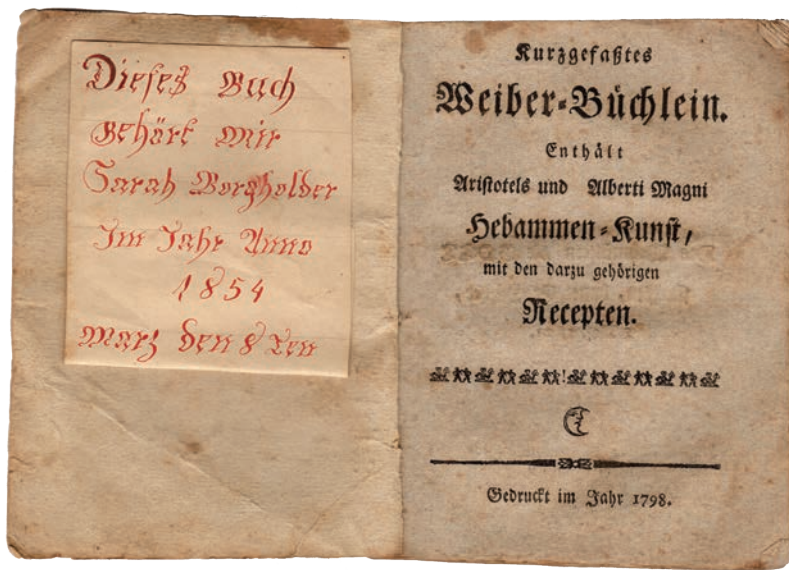 Dieses Buch
gehört Mir
Sarah Borgholder
Im Jahr Anno
1854
Marz den 8 Ten
Kurzgefaßtes
Weiber-Büchlein.
Enthält
Aristotels und Alberti Magni
Hebammen-Kunst,
mit den darzu gehörigen
Recepten.
Gedruckt im Jahr 1798.